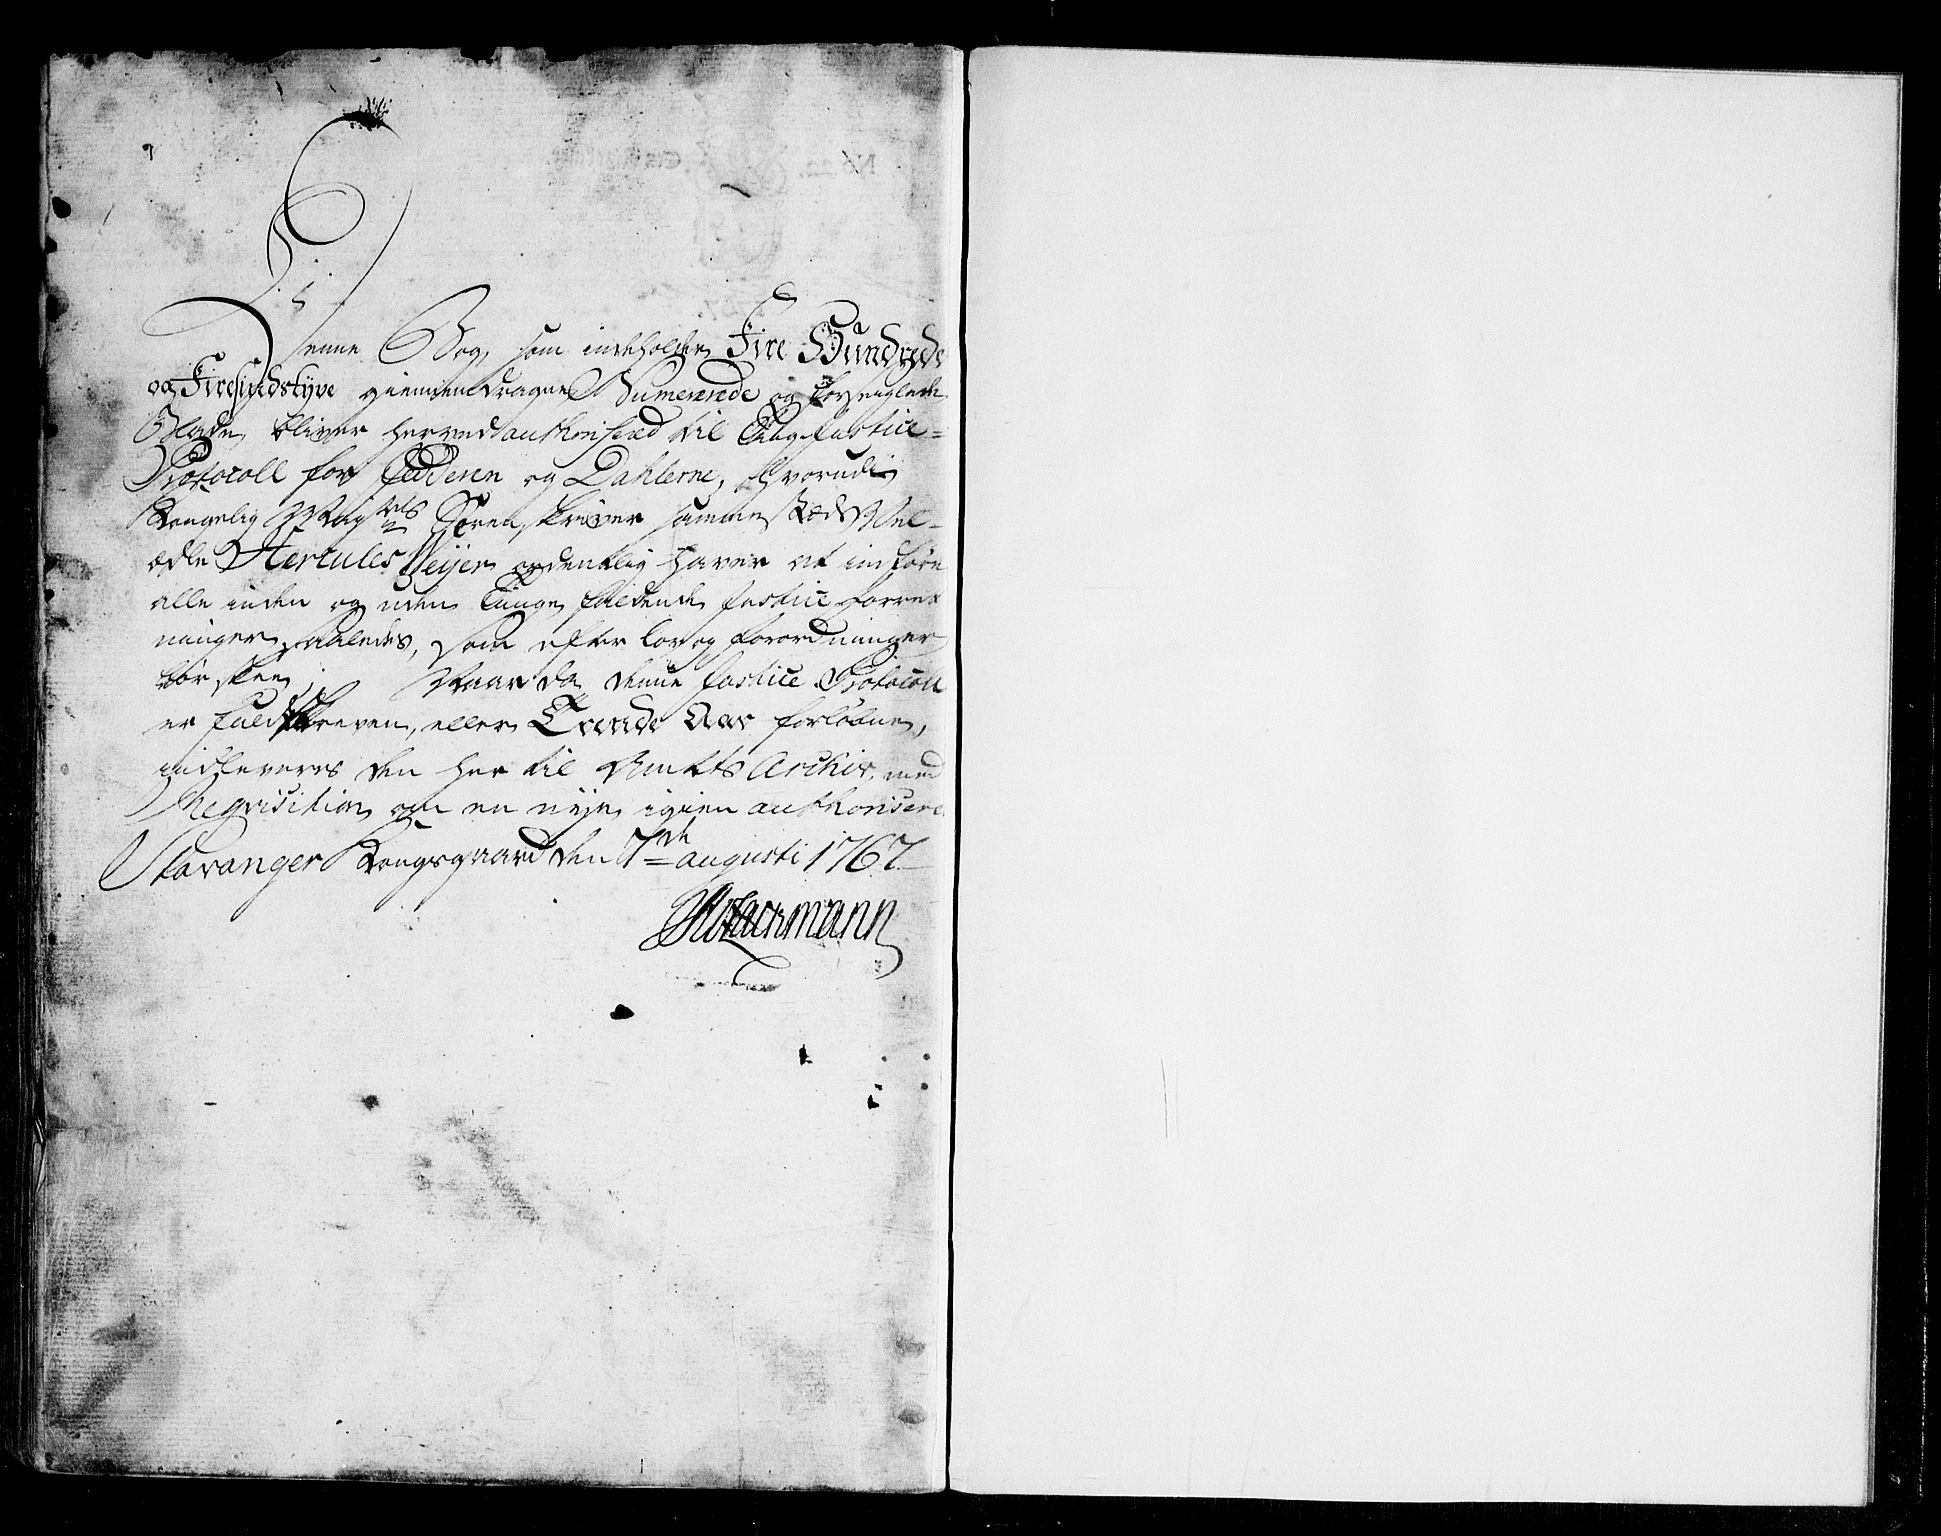 Denne Bog, som indeholder Fire Hundrede
og Firesindstyve giennemdragne Numererede og forseiglede
Blade, bliver herved authoriseed til Ting-Justice-
Protocoll for Jedderen og Dahlerne, hvorudi
Kongelig Mayts Sorenskriver sammesteds Wel-
ædle Hercules Weijer ordentlig haver at indføre
alle inden og uden Tinge faldende Justice-Forret
ninger saaledes, som efter Lov og Forordninger
bør skee, Naar da denne Justice-Protocoll
er fuldskreven, eller Trende Aar forløbne,
indleveres den her til Amtets Archiv, med
Reqvisition om en nye igien authorisere
Stavanger Kongsgaard den 7de augusti 1767.